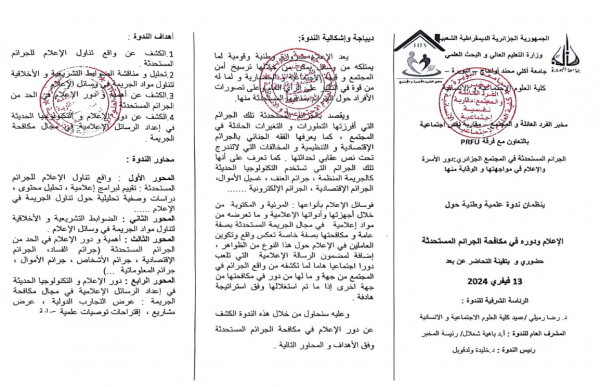 الجمهورية الجزائرية الديمقراطية الشعبية
وزارة التعليم العالي و البحث العلمي
جامعة أكلي محند أولحاج البويرة
كلية العلوم الاجتماعية و الإنسانية
مخبر الفرد العائلة و المجتمع مقاربة نفس اجتماعية
بالتعاون مع فرقة PRFU
الجرائم المستحدثة في المجتمع الجزائري:دور الأسرة
والإعلام في مواجهتها و الوقاية منها
ينظمان ندوة علمية وطنية حول
الإعلام ودوره في مكافحة الجرائم المستحدثة
حضوري و بتقنية التحاضر عن بعد
13 فيفري 2024
الرئاسة الشرفية للندوة:
د. رضا رميلي /عميد كلية العلوم الاجتماعية و الانسانية
المشرف العام للندوة: أ.د باهية شعلال/ رئيسة المخبر
رئيس الندوة : د.خليدة ولدقويل
ديباجة وإشكالية الندوة:
يعد الإعلام ضرورة وطنية وقومية لما
يمتلكه من وسائل يمكن من خلالها ترسيخ أمن
المجتمع و قيمه الاجتماعية و الحضارية و لما له
من قوة في التأثير على الرأي العام وعلى تصورات
الأفراد حول الجريمة منها.
ويقصد بالجرائم المستحدثة تلك الجرائم
التي أفرزتها التطورات و التغيرات الحادثة في
المجتمع ، كما يعرفها الفقه الجنائي بالجرائم
الإقتصادية و التنظيمية و المخالفات التي لاتندرج
تحت نص عقابي لحداثتها . كما تعرف على أنها
تلك الجرائم التي تستخدم التكنولوجيا الحديثة
كالجريمة المنظمة ، جرائم العنف ، غسيل الأموال،
الجرائم الإقتصادية ، الجرائم الإلكترونية .......
فوسائل الإعلام بأنواعها : المرئية و المكتوبة من
خلال أجهزتها وأدواتها الإعلامية و ما تعرضه من
مواد إعلامية في مجال الجريمة المستحدثة بصفة
عامة و مكافحتها بصفة خاصة تعكس واقع وتكوين
العاملين في الإعلام حول هذا النوع من الظواهر ،
إضافة لمضمون الرسالة الإعلامية التي تلعب
دورا اجتماعيا هاما لما تكشفه من واقع الجرائم في
المجتمع من جهة و ما لها من دور في مكافحتها من
جهة أخرى إذا ما تم استغلالها وفق استراتيجة
هادفة .
وعليه سنحاول من خلال هذه الندوة الكشف
عن دور الإعلام في مكافحة الجرائم المستحدثة
وفق الأهداف و المحاور التالية .
أهداف الندوة:
1.الكشف عن واقع تناول الإعلام للجرائم
المستحدثة .
2.تحليل و مناقشة الضوابط التشريعية و الأخلاقية
لتناول مواد الجريمة في وسائل الإعلام .
3.الكشف عن أهمية و دور الإعلام في الحد من
الجرائم المستحدثة .
4.الكشف عن دور الإعلام و التكنولوجيا الحديثة
في إعداد الرسائل الإعلامية في مجال مكافحة
الجريمة .
محاور الندوة:
المحور الأول : واقع تناول الإعلام للجرائم
المستحدثة : تقييم لبرامج إعلامية ، تحليل محتوى ،
دراسات وصفية تحليلية حول تناول الجريمة في
الإعلام ......
المحور الثاني: الضوابط التشريعية و الأخلاقية
لتناول مواد الجريمة في وسائل الإعلام .
المحور الثالث: أهمية و دور الإعلام في الحد من
الجرائم المستحدثة (جرائم الفساد، الجرائم
الإقتصادية ، جرائم الأشخاص ، جرائم الأموال ،
جرائم المعلوماتية ...)
المحور الرابع : دور الإعلام و التكنولوجيا الحديثة
في إعداد الرسائل الإعلامية في مجال مكافحة
الجريمة : عرض التجارب الدولية ، عرض
مشاريع ، إقتراحات توصيات علمية